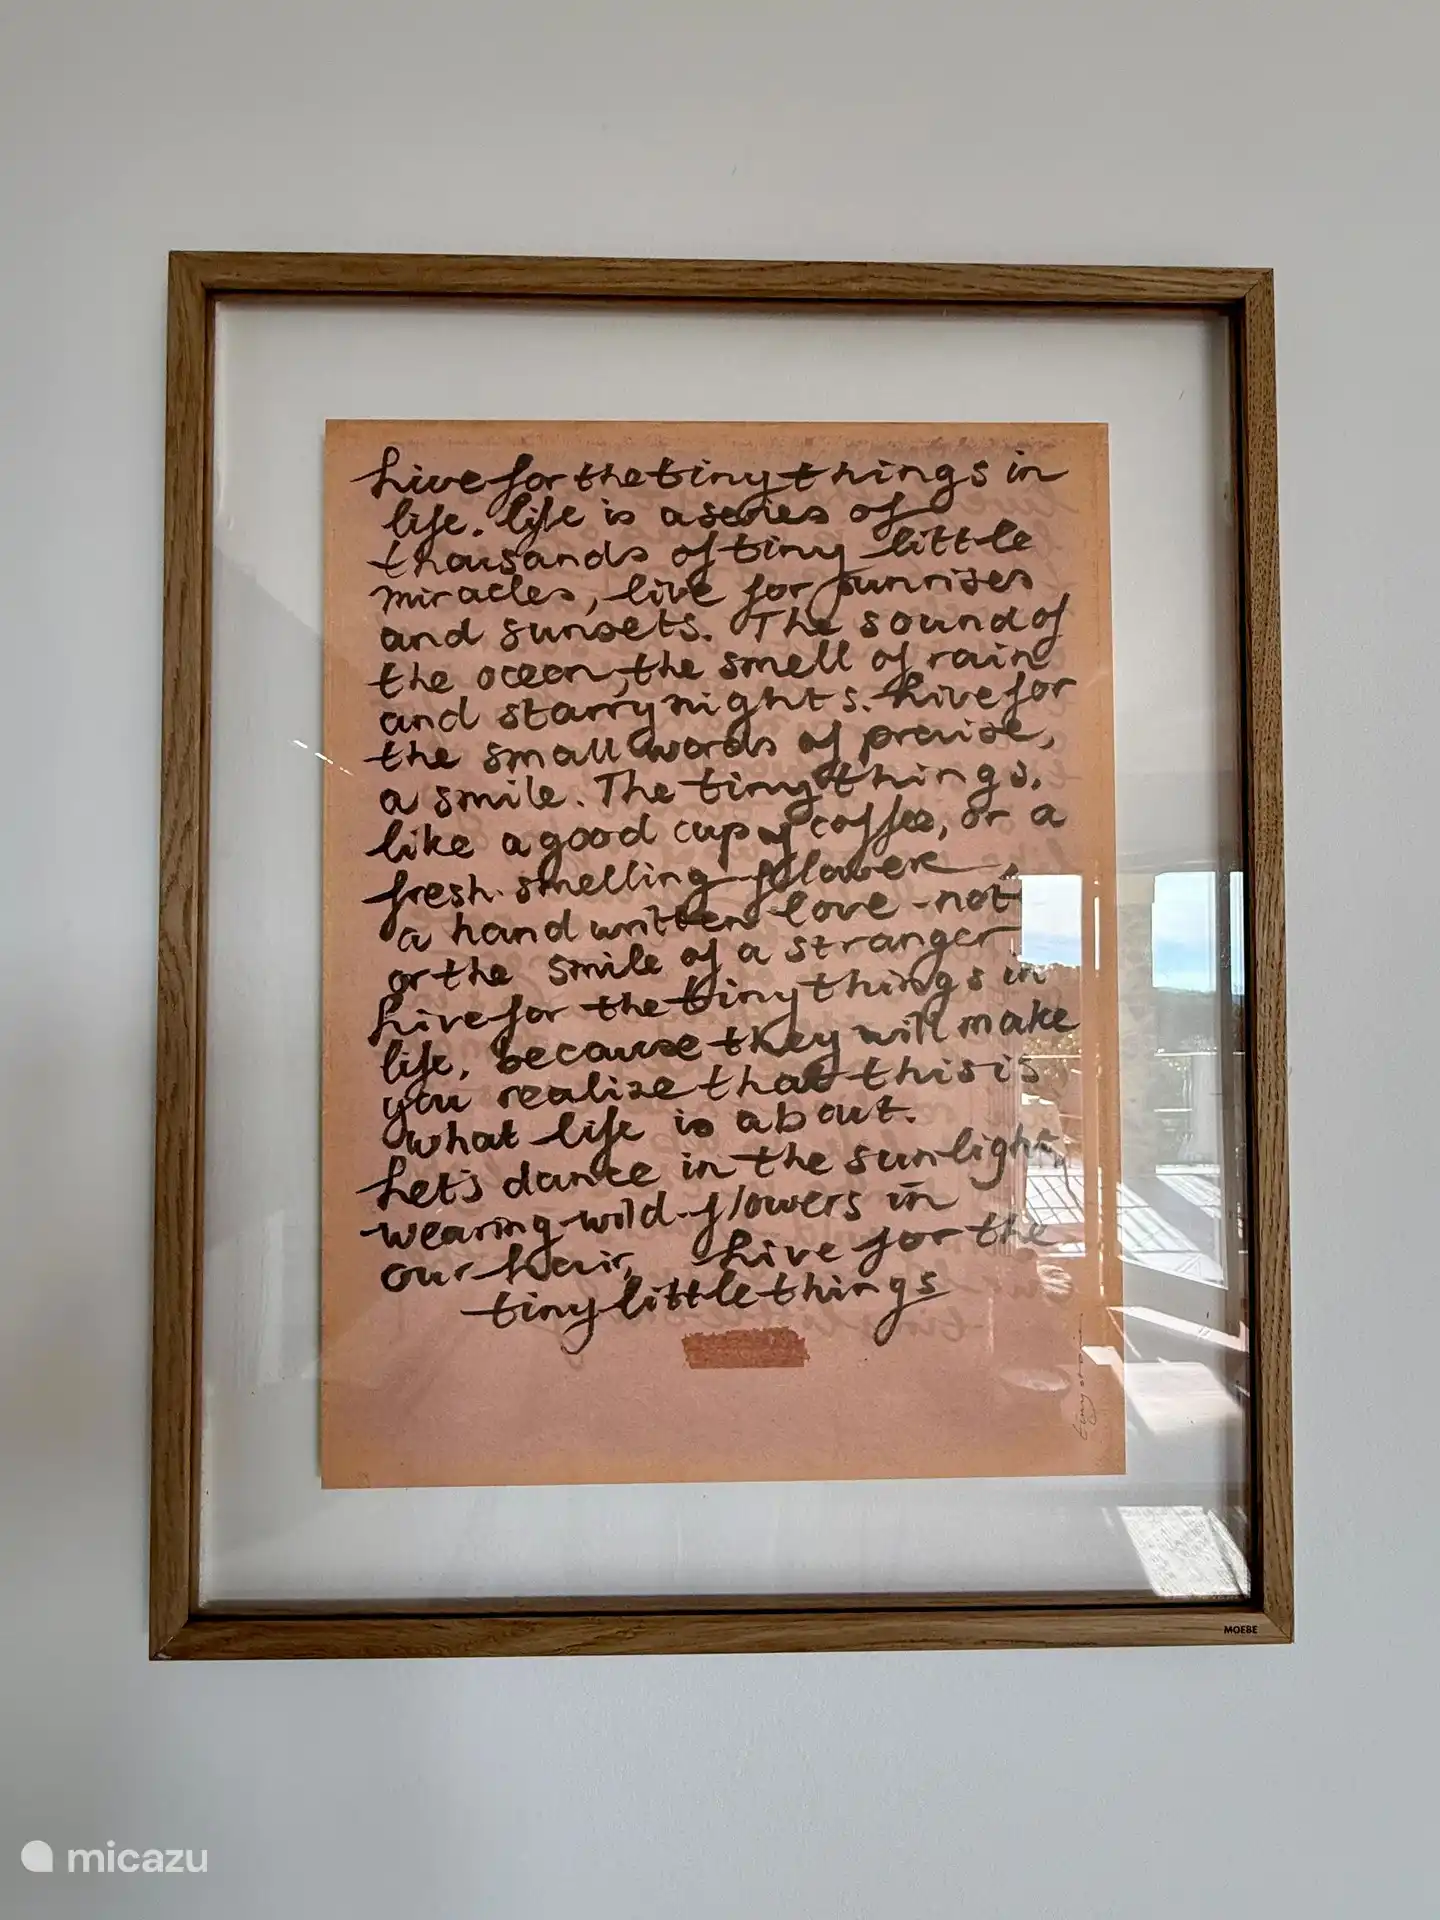 Live for the tiny things in
life. life is a series of
thousands of tiny little
miracles, live for sunrises
and sunsets. The sound of
the ocean, the smell of rain
and starry nights. Live for
the small words of praise,
a smile. The tiny things,
like a good cup of coffee, or a
fresh smelling flower,
a hand written love-not
or the smile of a stranger
Live for the tiny things in
life, because they will make
you realize that this is
what life is about.
Let's dance in the sunlight,
wearing wild-flowers in
our hair, Live for the
tiny little things
MOEBE
micazu